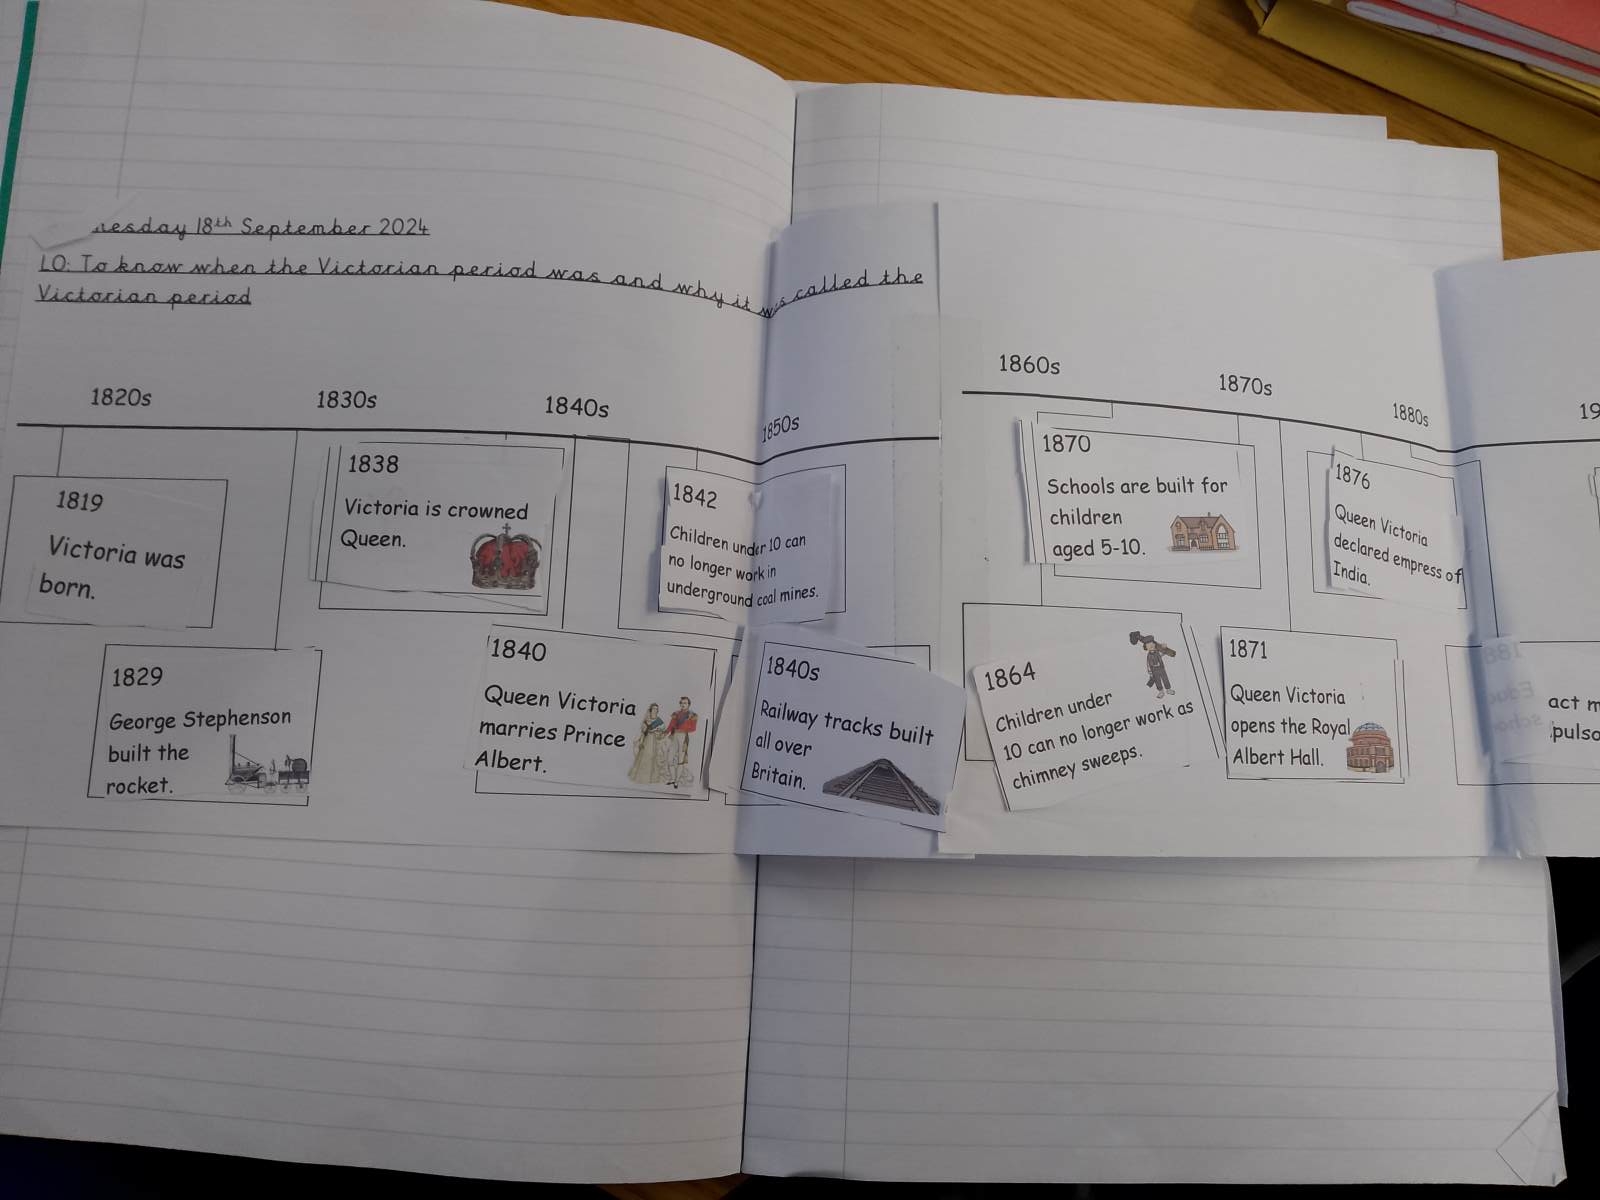 18th September 2024
LO: To know when the Victorian period was and why it was called the
Victorian period
1820s
1830s
1840s
1850s
1860s
1870s
1880s
19
1819
Victoria was
born.
1829
George Stephenson
built the
rocket.
1838
Victoria is crowned
Queen.
1840
Queen Victoria
marries Prince
Albert.
1842
Children under 10 can
no longer work in
underground coal mines.
1840s
Railway tracks built
all over
Britain.
1864
Children under
10 can no longer work as
chimney sweeps.
1870
Schools are built for
children
aged 5-10.
1871
Queen Victoria
opens the Royal
Albert Hall.
1876
Queen Victoria
declared empress of
India.
act